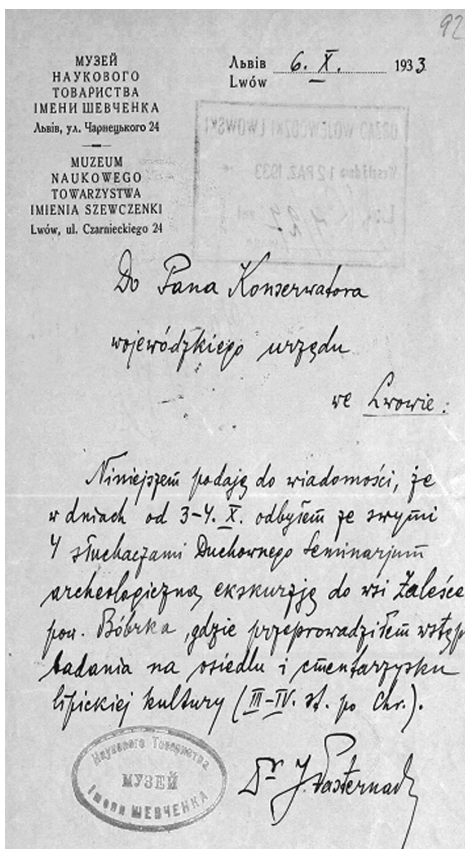 92
МУЗЕЙ
НАУКОВОГО
ТОВАРИСТВА
ІМЕНИ ШЕВЧЕНКА
Львів, ул. Чарнецького 24
MUZEUM
NAUKOWEGO
TOWARZYSTWA
IMIENIA SZEWCZENKI
Lwów, ul. Czarnieckiego 24
Львів
Lwów 6. X. 1933
URZĄD WOJEWÓDZKI LWOWSKI
12 PAŹ. 1933
Do Pana Konserwatora
wojewódzkiego urzędu
we Lwowie:
Niniejszem podaję do wiadomości, że
w dniach od 3-4. X. odbyłem ze swymi
4 słuchaczami Duchownego Seminarjum
archeologiczną ekskurzję do wsi Zaleśce
pow. Bóbrka, gdzie przeprowadziłem wstęp
badania na osiedlu i cmentarzysku
lipickiej kultury (III-IV. st. po Chr.).
Dr J. Pasternak
Наукового Товариства
МУЗЕЙ
Імени ШЕВЧЕНКА